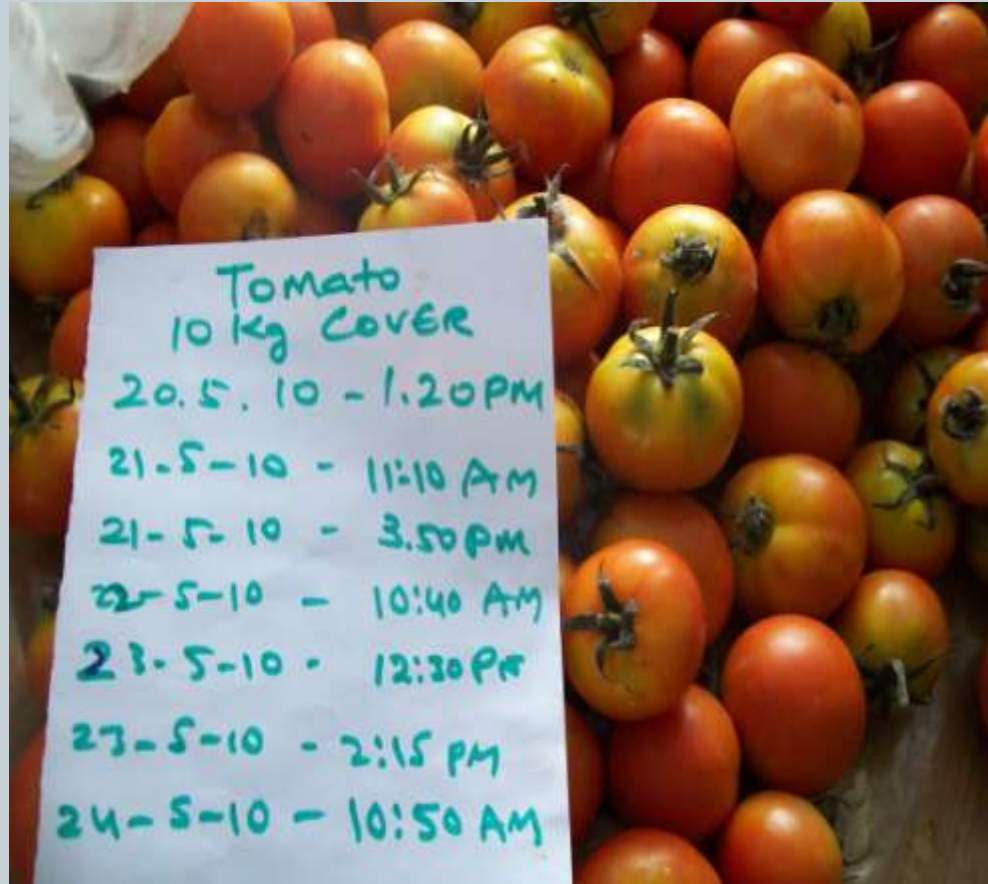 Tomato
10 Kg COVER
20.5.10 - 1.20PM
21-5-10 - 11:10 AM
21-5-10 - 3.50PM
22-5-10 - 10:40 AM
23-5-10 - 12:30PM
23-5-10 - 2:15 PM
24-5-10 - 10:50 AM